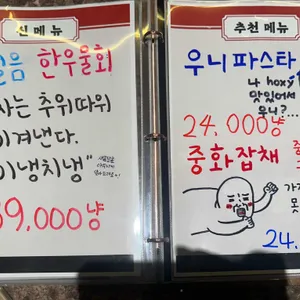 신 메뉴
한우물회
사는 추위따위
이겨낸다.
이냉치냉"
39,000냥
추천 메뉴
우니파스타
나 hoxy
맛있어서
우니?...
24.000냥
중화잡채
24.